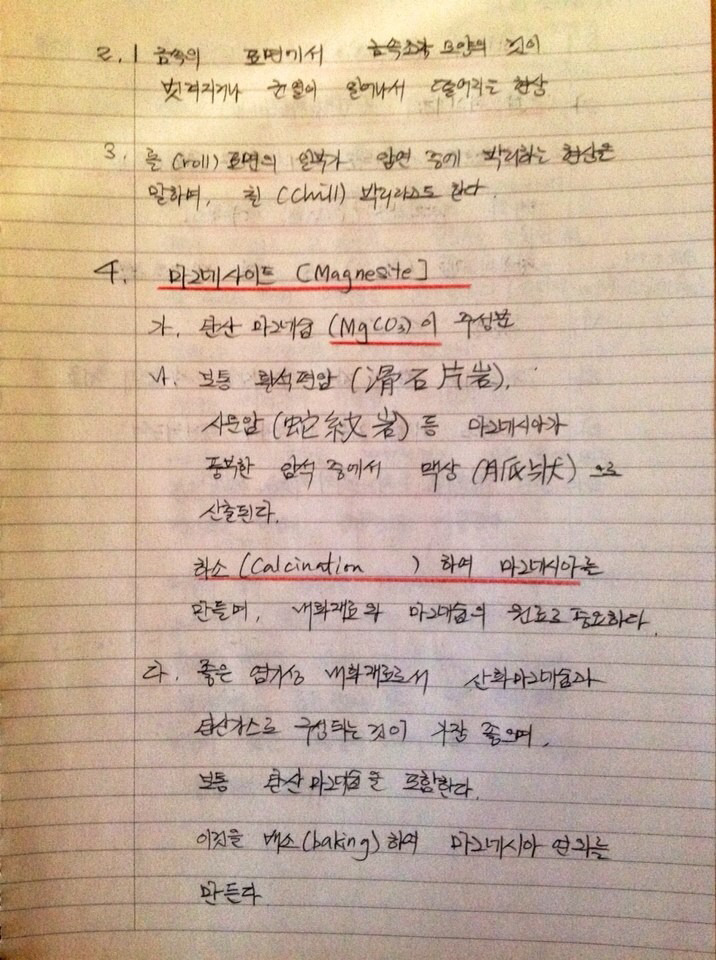 2. 금속의 표면에서 금속조각 모양의 것이
벗겨지거나 균열이 일어나서 떨어지는 현상
3. 롤 (roll) 표면의 일부가 압연 중에 박리하는 현상을
말하며, 칠 (Chill) 박리라고도 한다.
4. 마그네사이트 [Magnesite]
가. 탄산 마그네슘 (MgCO3)이 주성분
나. 보통 활석편암 (滑石片岩),
사문암 (蛇紋岩) 등 마그네시아가
풍부한 암석 중에서 맥상 으로
산출된다.
하소 (Calcination ) 하여 마그네시아를
만들며, 내화재료와 마그네슘의 원료로 중요하다.
다. 좋은 염기성 내화재료로서 산화마그네슘과
탄산가스로 구성되는 것이 가장 좋으며,
보통 탄산마그네슘을 포함한다.
이것을 배소(baking)하여 마그네시아 연와를
만든다